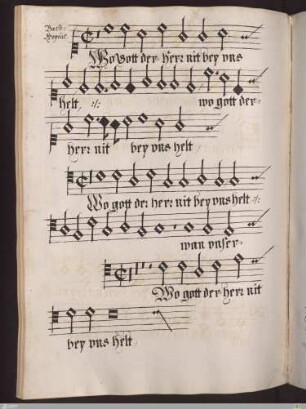 Wo Gott der herr nit bey vns
helt :/: wo gott der
herr nit bey vns helt
Wo gott der herr nit bey vns helt :/:
wan vnser
Wo gott der herr nit
bey vns helt